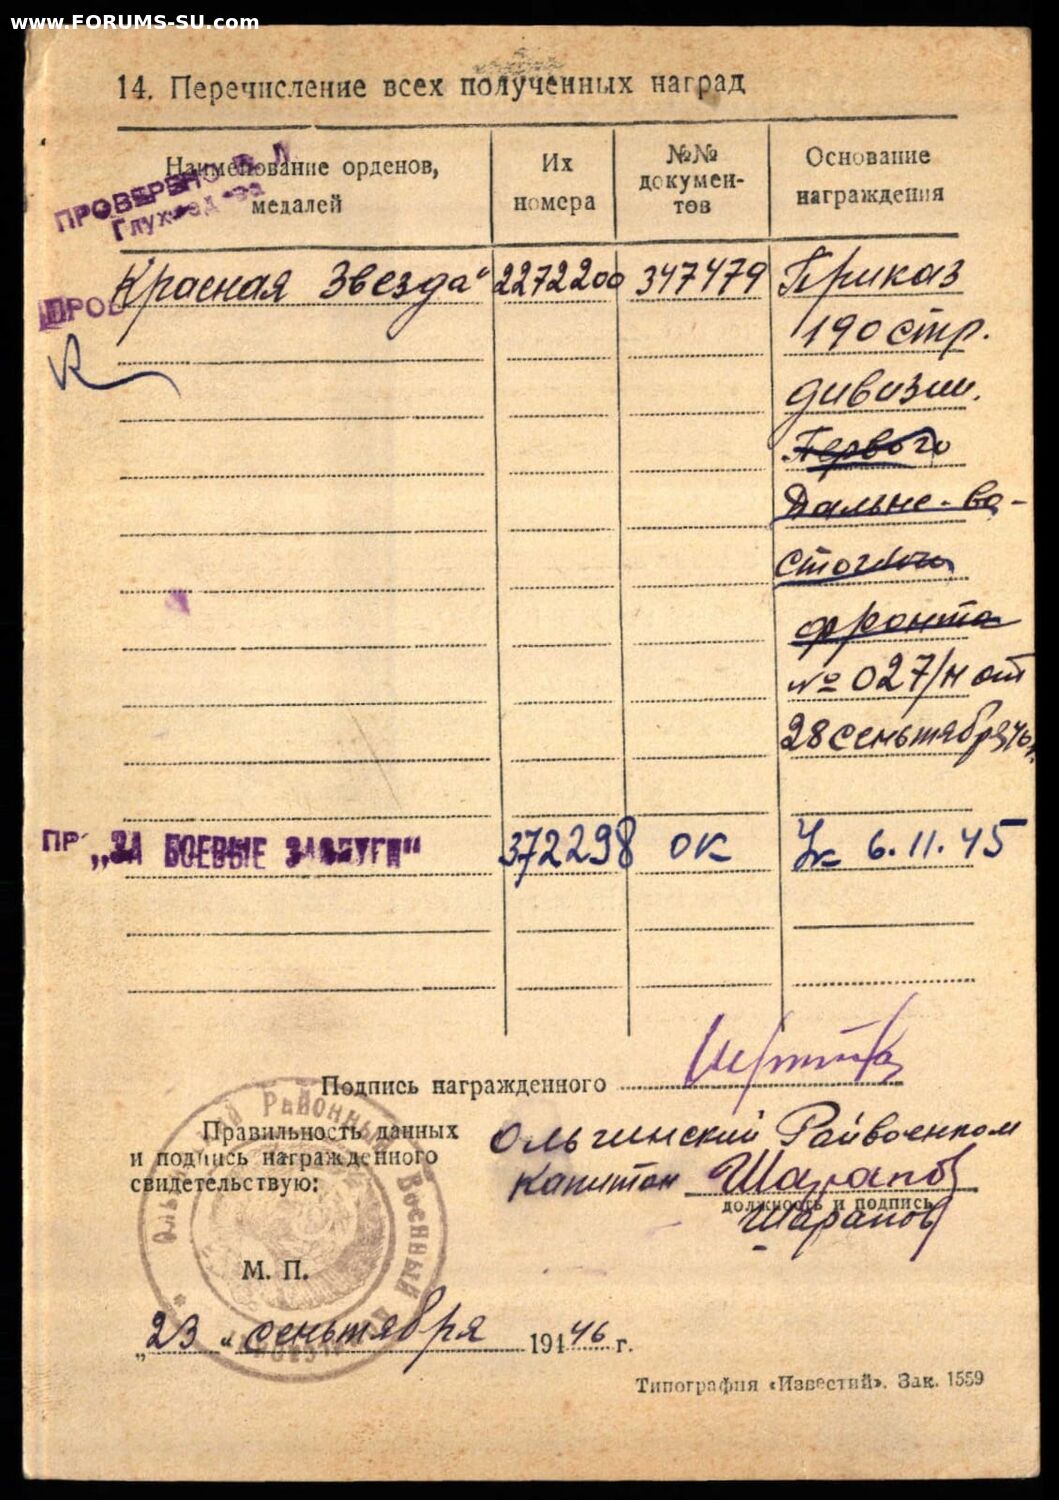 www.FORUMS-SU.com
14. Перечисление всех полученных наград
Наименование орденов, медалей
Их номера
№№ докумен-
тов
Основание награждения
ПРОВЕРЕНО
ПРОВ
Красная Звезда" 2272200 347479 Приказ
190 стр.
дивизии.
Первого
Дально-во-
сточного
фронта
№ 027/н от
28 сентября 46 г.
ПР „ЗА БОЕВЫЕ ЗАСЛУГИ" 372298 ОК Ук 6.11.45
Подпись награжденного
Правильность данных
и подпись награжденного
свидетельствую:
Ольгинский Райвоенком
Капитан Шарапов
должность и подпись
Шарапов
М. П.
„23" сеньтября 194 46 г.
Районный Военный
Типография «Известий». Зак. 1559